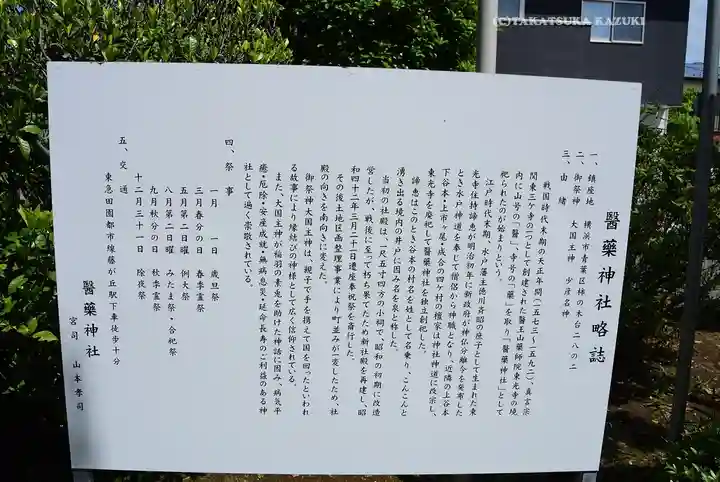 (C)TAKATSUKA KAZUKI
醫藥神社略誌
一、鎮座地　横浜市青葉区柿の木台二八の二
二、御祭神　大国主神　少彦名神
三、由緒
戦国時代末期の天正年間(一五七三〜一五九二)、真言宗
関東三ケ寺の一つとして創建された醫王山藥師院東光寺の境
内に山号の「醫」、寺号の「藥」を取り「醫藥神社」として
祀られたのが始まりという。
江戸時代末期、水戸藩主徳川斉昭の庶子として生まれた東
光寺住持諦恵が明治初年に新政府が神仏分離令を発布した
とき水戸神道を奉じて僧侶から神職となり、近隣の上谷本・
下谷本・上市ヶ尾・成合の四ケ村の檀家は神社神道に改宗し、
東光寺を廃祀して醫藥神社を独立創祀した。
諦恵はこのとき谷本の村名を姓として名乗り、こんこんと
湧き出る境内の井戸に因み名を泉と称した。
当初の社殿は、二尺五寸四方の小祠で、昭和の初期に改造
営したが、戦後に至って朽ち果てたため新社殿を再建し、昭
和四十二年三月二十一日遷座奉祝祭を斎行した。
その後土地区画整理事業により町並みが一変したため、社
殿の向きを南向きに変えた。
御祭神大国主神は、親子で手を携えて国を回ったといわれ
る故事により縁結びの神様として広く信仰されている。
また、大国主神が稲羽の素兎を助けた神話に因み、病気平
癒・厄除・安産成就・無病息災・延命長寿のご利益のある神
社として遍く崇敬されている。
四、祭事
一月　一日　歳旦祭
三月春分の日　春季霊祭
五月第二日曜　例大祭
八月第二日曜　みたま祭・合祀祭
九月秋分の日　秋季霊祭
十二月三十一日　除夜祭
五、交通
東急田園都市線藤が丘駅下車徒歩十分
醫藥神社
宮司　山本孝司